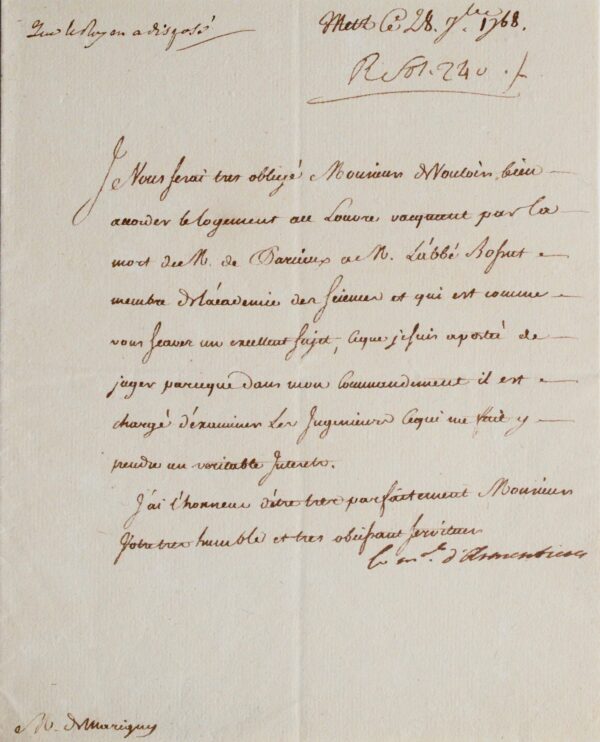 Que le Roy en a disposé
Metz Ce 28. 7bre 1768.
R e 8bre. 240
Je Vous serai tres obligé Monsieur de Vouloir bien
accorder le logement au Louvre vacquant par la
mort de M. de Parcieux a M. L'abbé Bossut
membre de l'academie des sciences et qui est comme
vous scaver un excellent sujet, ceque je suis aporté de
juger parceque dans mon Commandement il est
chargé d'examiner Les Ingenieurs Cequi me fait y
prendre un veritable Interets.
J'ai l'honneur d'étre tres parfaitement Monsieur
Votre tres humble et tres obeissant serviteur
le mal. d'Armentieres
M. de Marigny